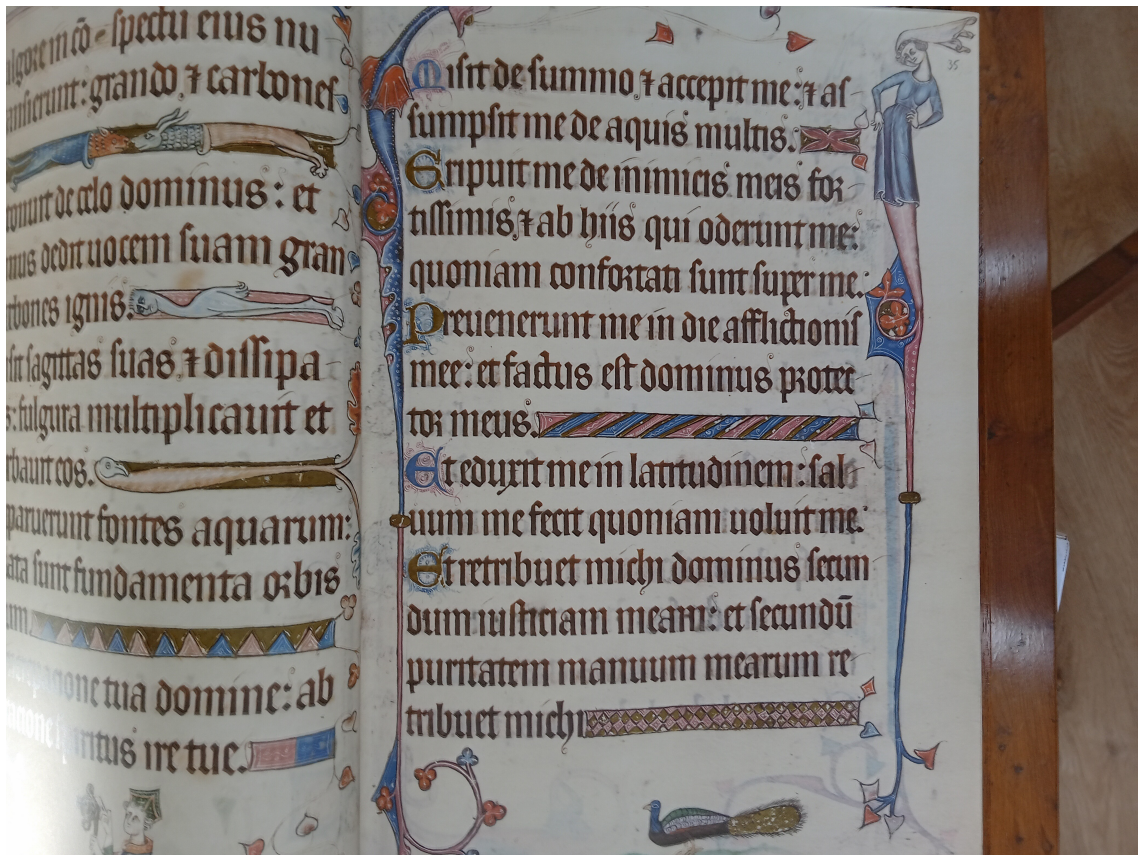 in co-spectu eius nu
sierunt: grando, ⁊ carbones
de celo dominus: et
mus dedit uocem suam gran
ignis.
sagittas suas, ⁊ dissipa
fulgura multiplicauit et
eos.
paruerunt fontes aquarum:
sunt fundamenta orbis
tua domine: ab
ire tue.
35
Misit de summo, ⁊ accepit me: ⁊ as
sumpsit me de aquis multis.
Eripuit me de inimicis meis for
tissimis, ⁊ ab hiis qui oderunt me:
quoniam confortati sunt super me.
Preuenerunt me in die afflictionis
mee: et factus est dominus protec
tor meus.
Et eduxit me in latitudinem: sal
uum me fecit quoniam uoluit me.
Et retribuet michi dominus secun
dum iusticiam meam: et secundū
puritatem manuum mearum re
tribuet michi